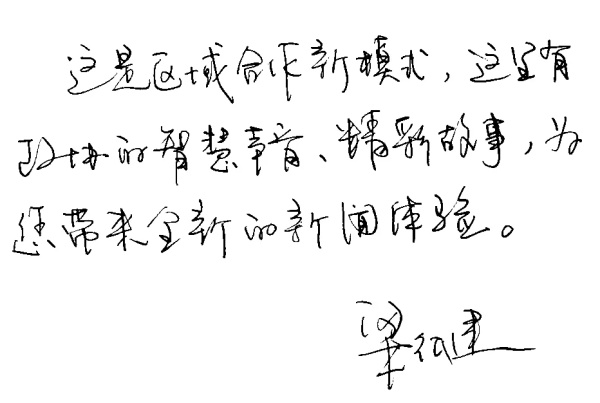 这是区域合作新模式，这里有
政协的智慧声音、精彩故事，为
您带来全新的新闻体验。
梁